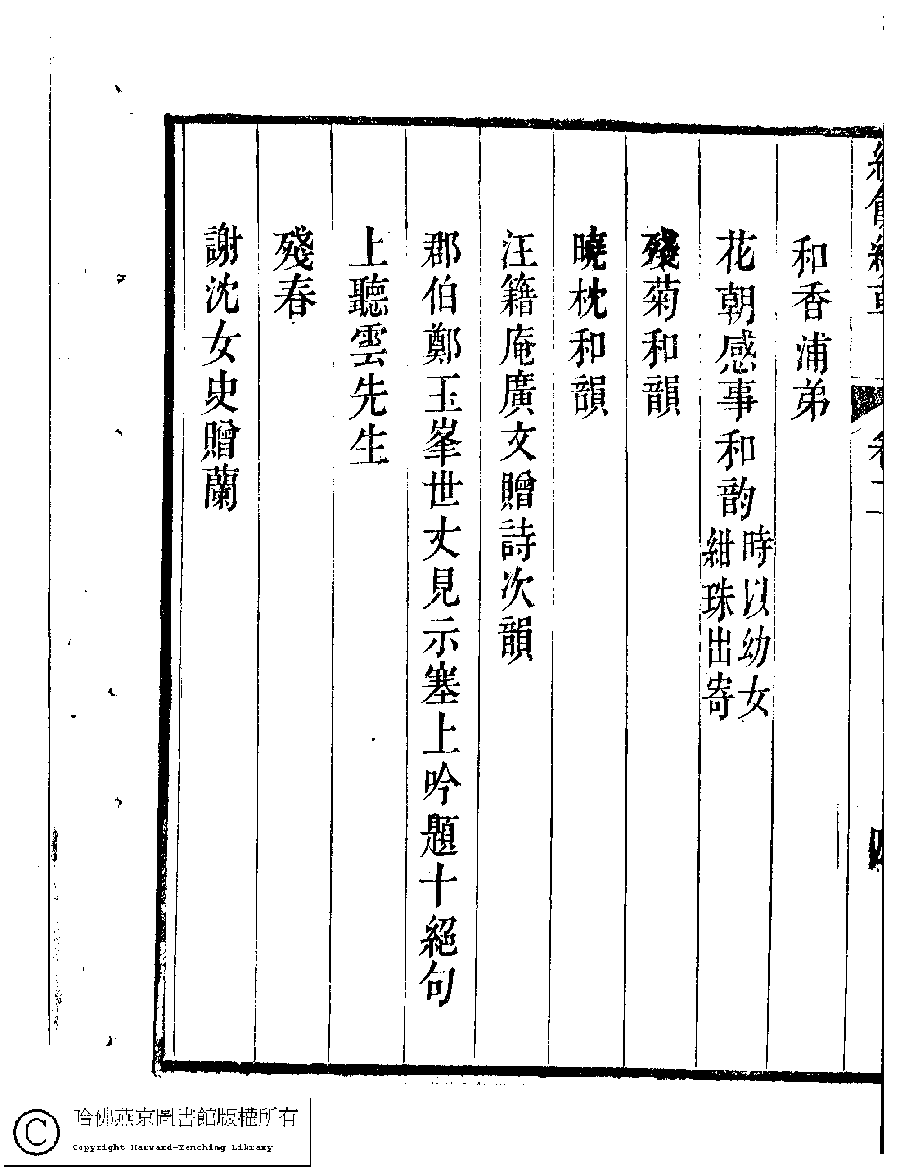 和香浦弟
花朝感事和韵時以幼女紺珠出寄
殘菊和韻
曉枕和韻
汪籍庵廣文贈詩次韻
郡伯鄭玉峯世丈見示塞上吟題十絕句
上聽雲先生
殘春
謝沈女史贈蘭
哈佛燕京圖書館版權所有
Copyright Harvard-Yenching Library